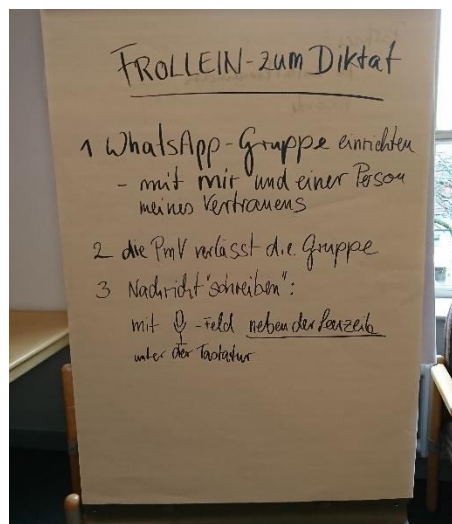 FROLLEIN - zum Diktat
1 WhatsApp-Gruppe einrichten
- mit mir und einer Person
meines Vertrauens
2 die PmV verlässt die Gruppe
3 Nachricht "schreiben":
mit -Feld neben der Leerzeile
unter der Tastatur